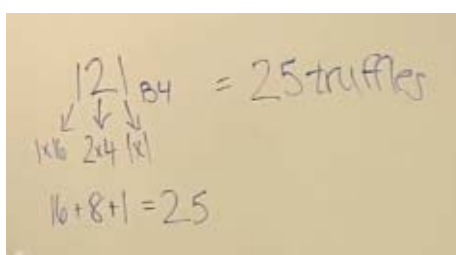 121 B4 = 25 truffles
1x16 2x4 1x1
16+8+1=25